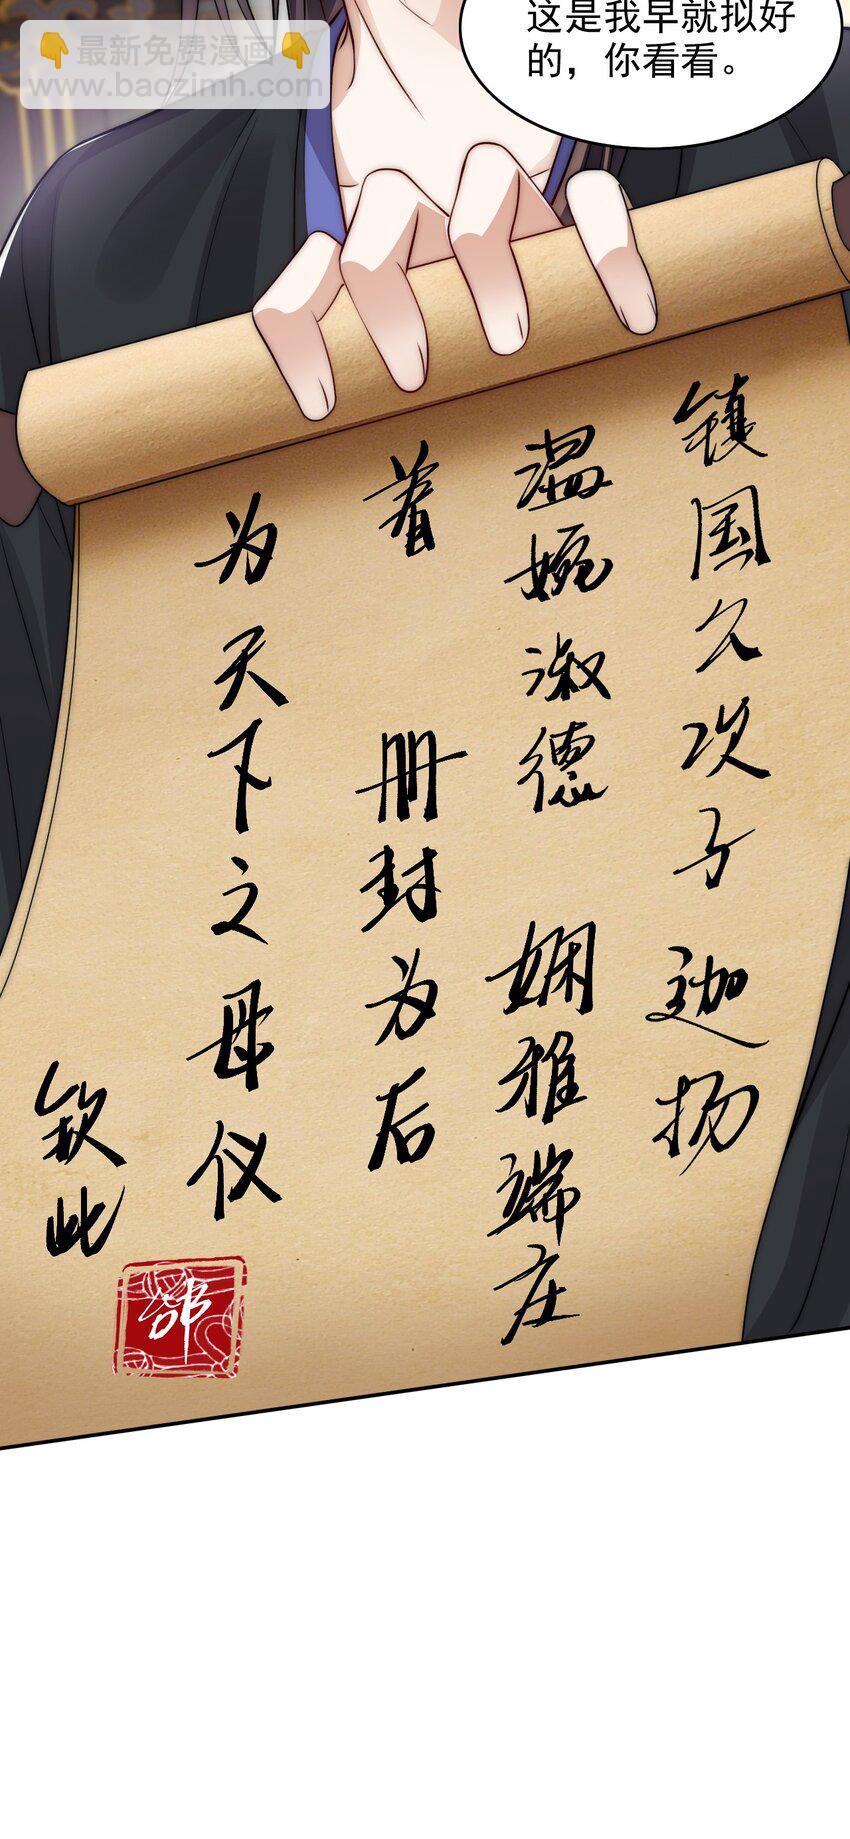 最新免费漫画
www.baozimh.com
这是我早就拟好
的，你看看。
镇国久次子 迦扬
温婉淑德 娴雅端庄
着 册封为后
为天下之母仪
钦此